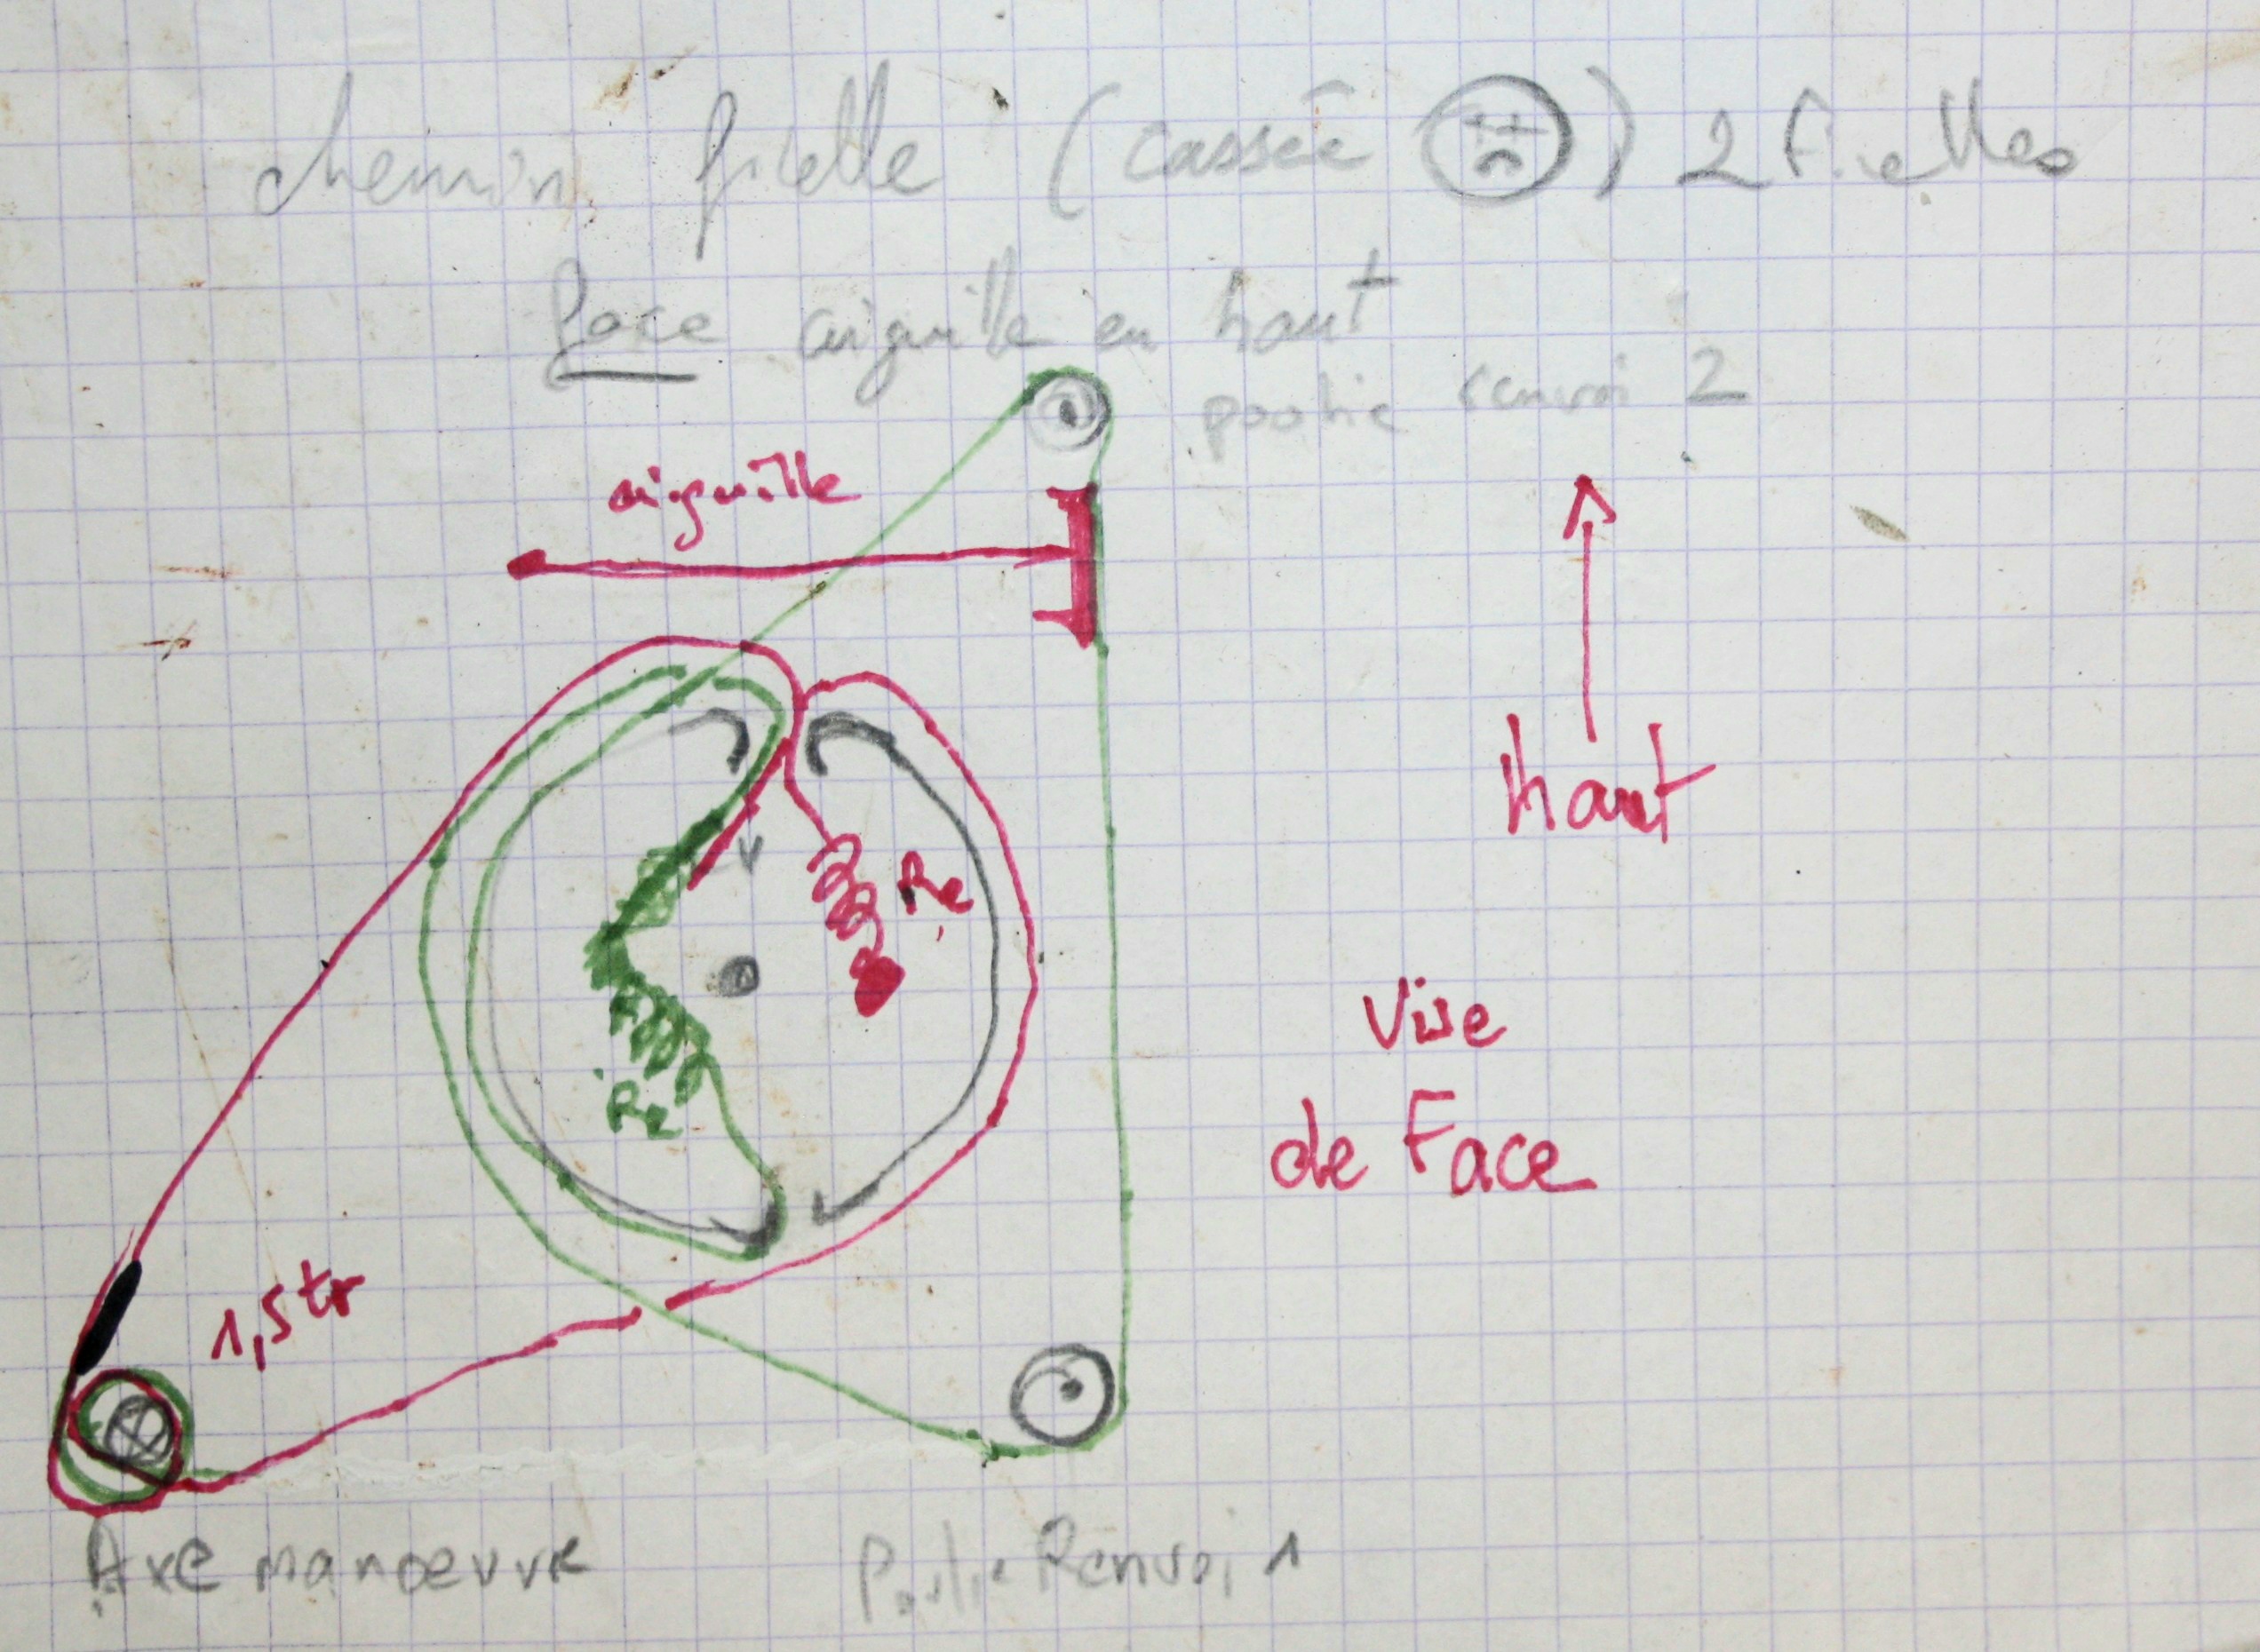 chemin ficelle (cassée ) 2 ficelles
Face aiguille en haut
poulie renvoi 2
aiguille
haut
Re
Vue
de Face
Re
1,5 tr
Axe manoeuvre
Poulie Renvoi 1